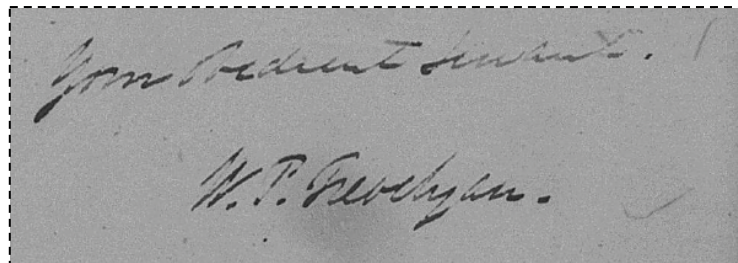 Your Obedient Servant.
W. P. Trevelyan.